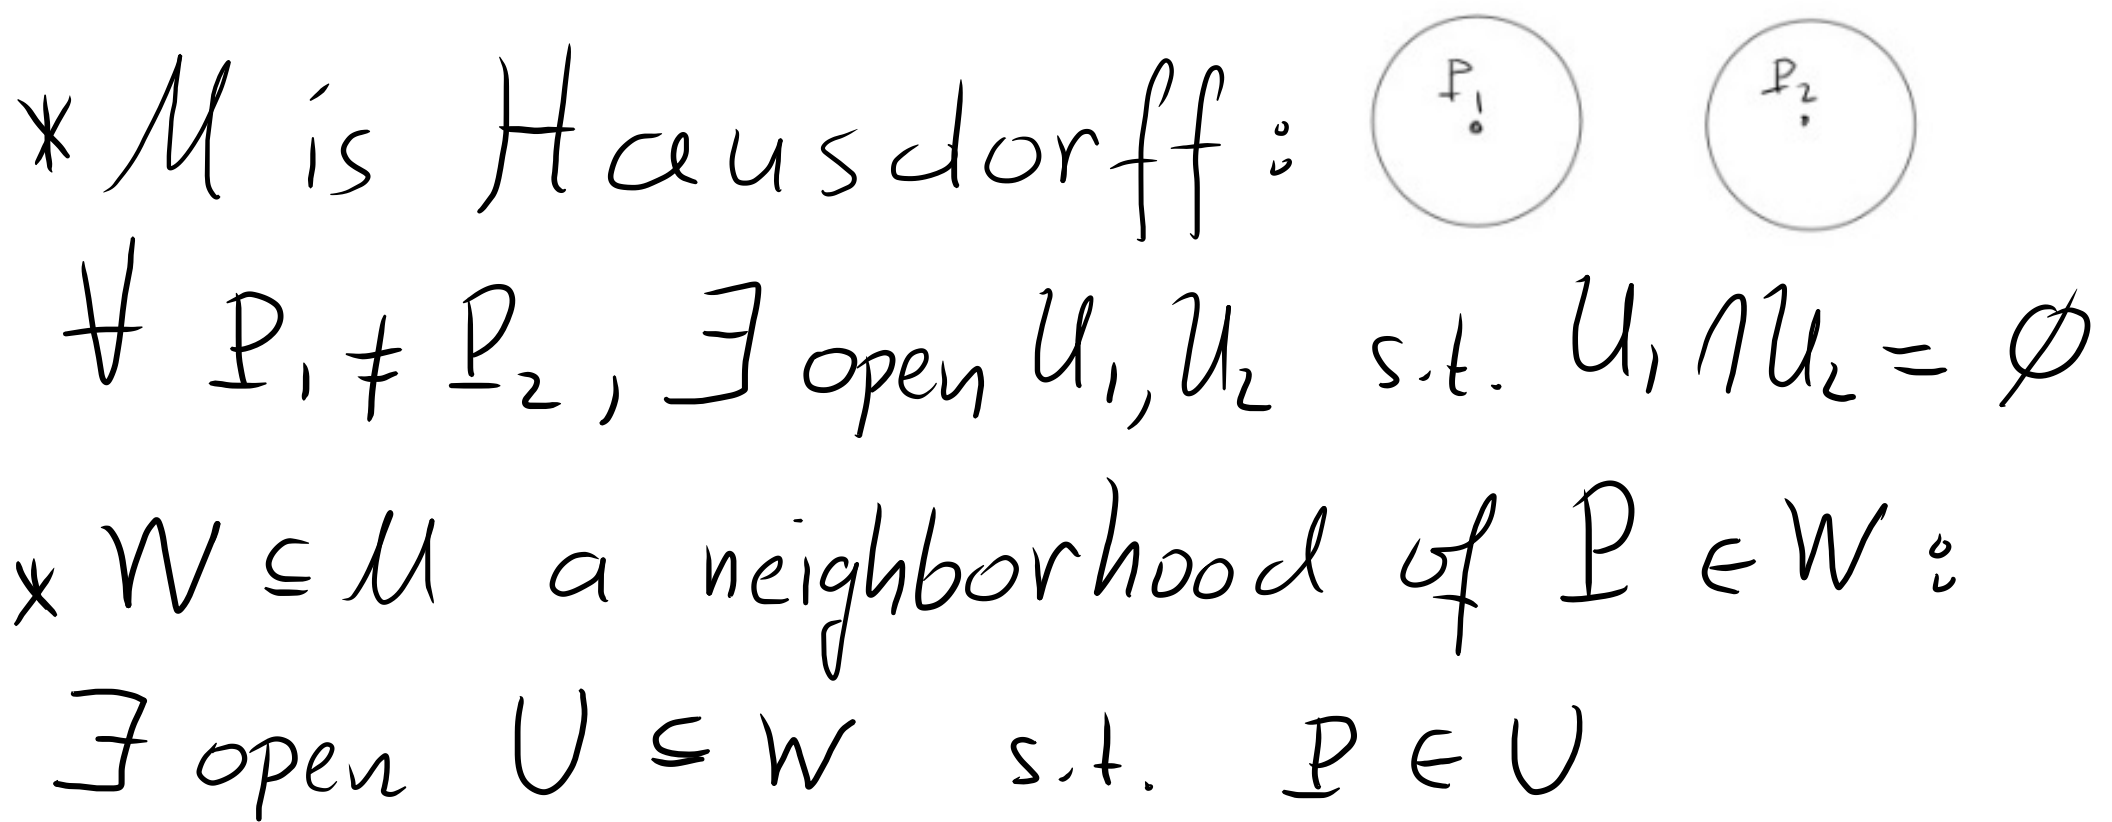 * M is Hausdorff: P₁ P₂
∀ P₁ ≠ P₂, ∃ open U₁, U₂ s.t. U₁ ∩ U₂ = ∅
* W ⊆ M a neighborhood of P ∈ W:
∃ open U ⊆ W s.t. P ∈ U